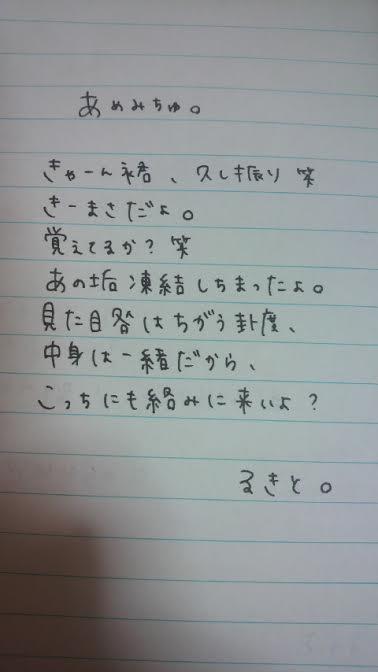 あめみちゅ。
きゃーん裙、久しキ振り 笑
きーまさだよ。
覚えてるか？笑
あの垢凍結しちまったよ。
見た目咎はちがう卦度、
中身は一緒だから、
こっちにも絡みに来いよ？
るきと。